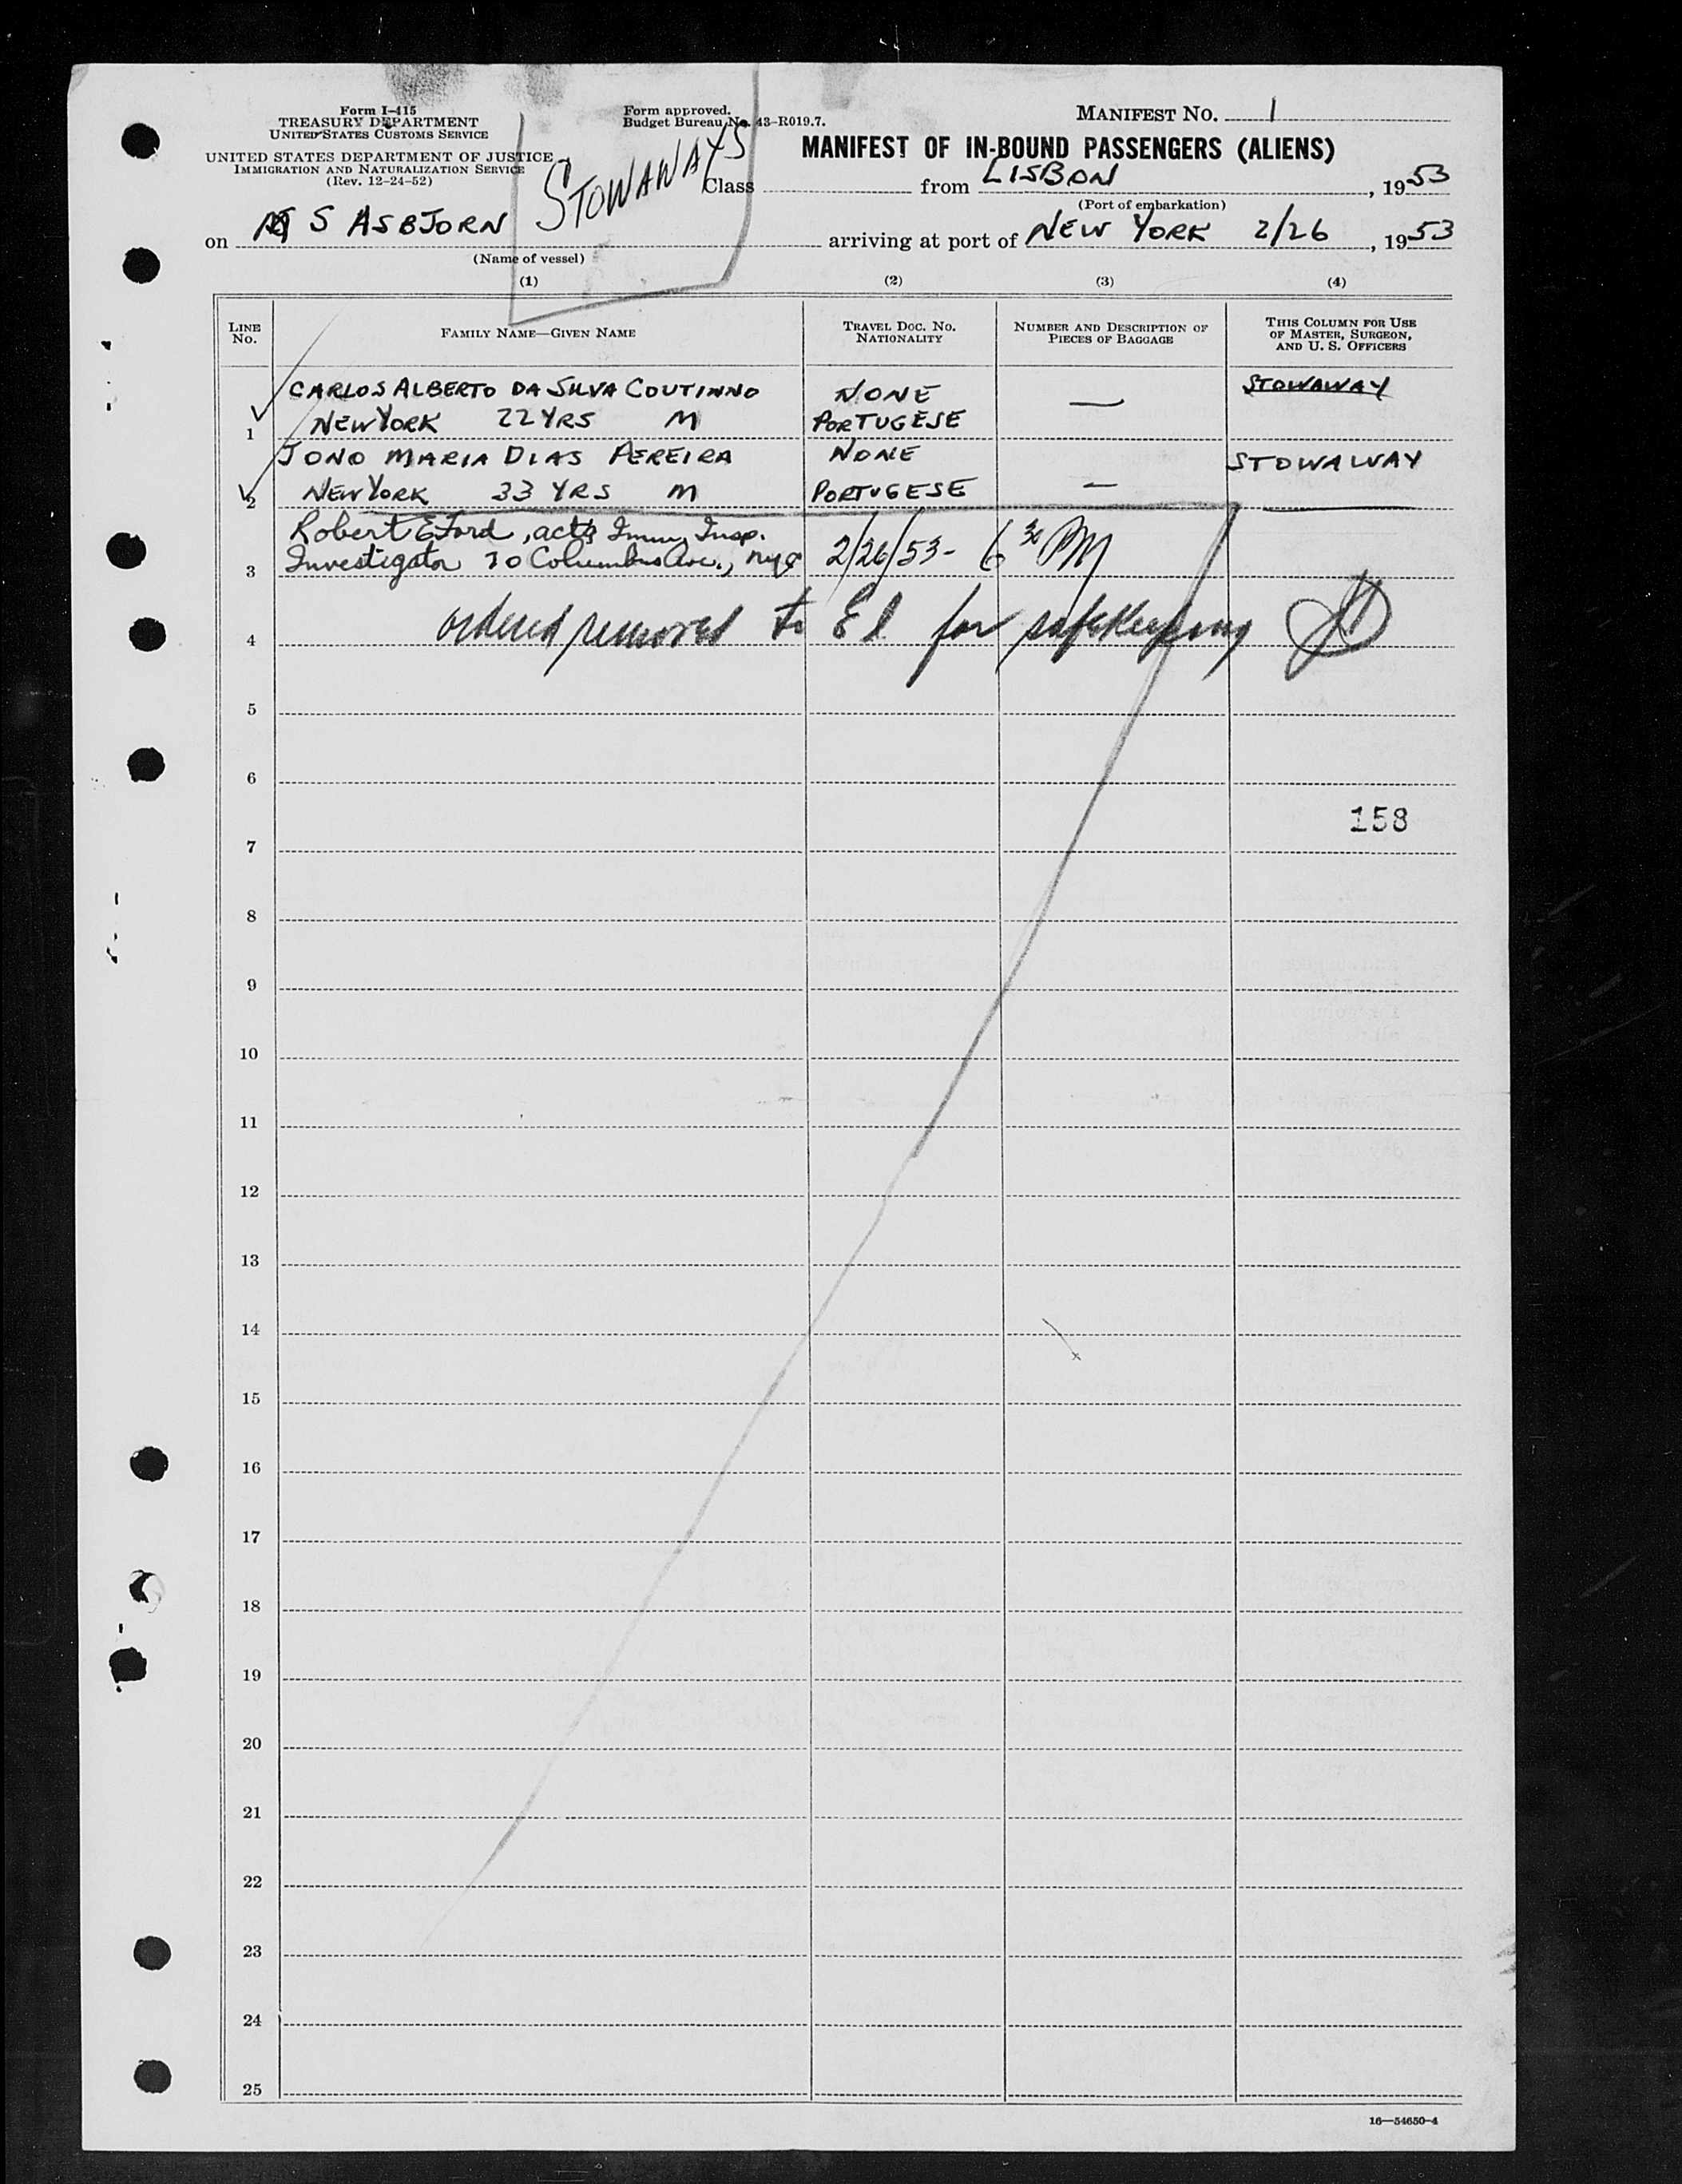 Form I-415
TREASURY DEPARTMENT
UNITED STATES CUSTOMS SERVICE
UNITED STATES DEPARTMENT OF JUSTICE
IMMIGRATION AND NATURALIZATION SERVICE
(Rev. 12-24-52)
Form approved.
Budget Bureau No. 43-R019.7.
MANIFEST NO. 1
MANIFEST OF IN-BOUND PASSENGERS (ALIENS)
STOWAWAYS
Class from LISBON, 1953
(Port of embarkation)
on S ASBJORN arriving at port of NEW YORK 2/26, 1953
(Name of vessel)
(1) (2) (3) (4)
LINE NO. FAMILY NAME—GIVEN NAME TRAVEL DOC. NO. NATIONALITY NUMBER AND DESCRIPTION OF PIECES OF BAGGAGE THIS COLUMN FOR USE OF MASTER, SURGEON, AND U. S. OFFICERS
CARLOS ALBERTO DA SILVA COUTINNO NONE — STOWAWAY
1 NEW YORK 22 YRS M PORTUGESE
JONO MARIA DIAS PEREIRA NONE STOWAWAY
2 NEW YORK 33 YRS M PORTUGESE —
Robert E Ford, actg Imm. Insp.
3 Investigator 70 Columbus Ave., NYC 2/26/53 - 6 30 PM
4 ordered removed to E I for safekeeping
5
6
158
7
8
9
10
11
12
13
14
15
16
17
18
19
20
21
22
23
24
25
16—54650-4